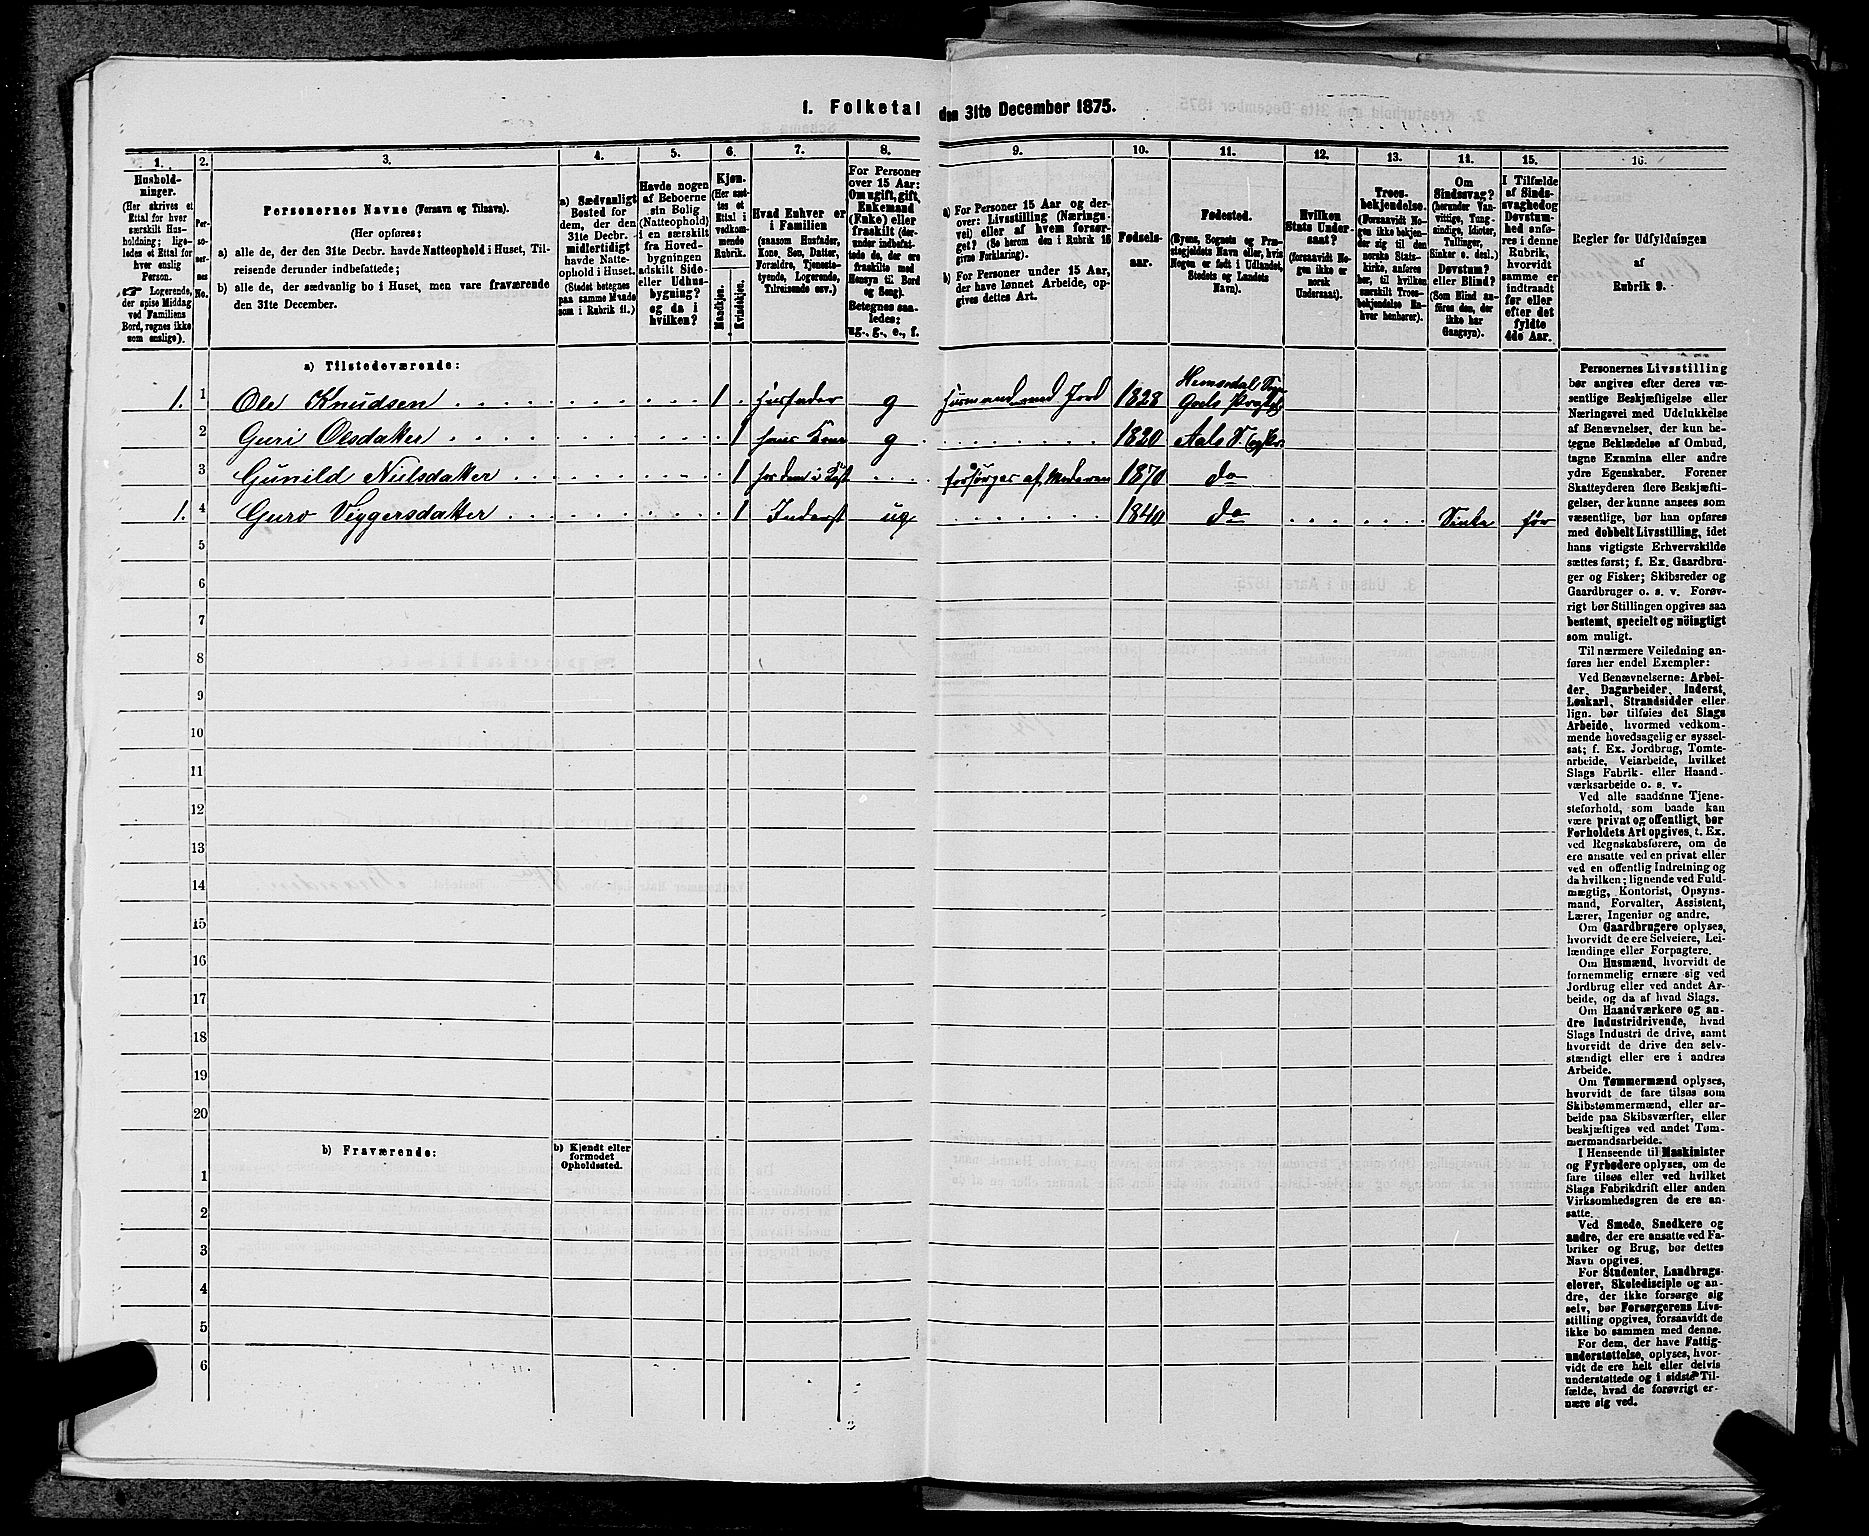 1. Folketal den 31te December 1875.
1. 2. 3. 4. 5. 6. 7. 8. 9. 10. 11. 12. 13. 14. 15. 16.
Hushold-
ninger.
(Her skrives et
Ettal for hver
særskilt Hus-
holdning; lige-
ledes et Ettal for
hver enslig
Person.
☞ Logerende,
der spise Middag
ved Familiens
Bord, regnes ikke
som enslige).
Per-
soner-
nes
No.
Personernes Navne (Fornavn og Tilnavn).
(Her opføres:
a) alle de, der den 31te Decbr. havde Natteophold i Huset, Til-
reisende derunder indbefattede;
b) alle de, der sædvanlig bo i Huset, men vare fraværende
den 31te December.
a) Sædvanligt
Bosted for
dem, der den
31te Decbr.
midlertidigt
havde Natte-
ophold i Huset.
(Stedet betegnes
paa samme Maade
som i Rubrik 11.)
Havde nogen
af Beboerne
sin Bolig
(Natteophold)
i en særskilt
fra Hoved-
bygningen
adskilt Side-
eller Udhus-
bygning?
og da i
hvilken?
Kjøn.
(Her sæt-
tes et
Ettal i
vedkom-
mende
Rubrik.
Mandkjøn.
Kvindekjøn.
Hvad Enhver er
i Familien
(saasom Husfader,
Kone, Søn, Datter,
Forældre, Tjeneste-
tyende, Logerende,
Tilreisende osv.)
For Personer
over 15 Aar:
Om ugift, gift,
Enkemand
(Enke) eller
fraskilt (der-
under indbefat-
tede de, der ere
fraskilte med
Hensyn til Bord
og Seng).
Betegnes saa-
ledes:
ug., g., e., f.
a) For Personer 15 Aar og der-
over: Livsstilling (Nærings-
vei) eller af hvem forsør-
get? (Se herom den i Rubrik 16
givne Forklaring).
b) For Personer under 15 Aar,
der have lønnet Arbeide, op-
gives dettes Art.
Fødsels-
aar.
Fødested.
(Byens, Sognets og Præ-
stegjeldets Navn eller, hvis
Nogen er født i Udlandet,
Stedets og Landets
Navn).
Hvilken
Stats Under-
saat?
(forsaavidt No-
gen ikke er
norsk
Undersaat).
Troes-
bekjendelse.
(Forsaavidt No-
gen ikke bekjen-
der sig til den
norske Stats-
kirke, anføres
her, til hvilken
særskilt Troes-
bekjendelse En-
hver henhører).
Om
Sindssvag?
(herunder Van-
vittige, Tung-
sindige, Idioter,
Tullinger,
Sinker o. desl.)
Døvstum?
eller Blind?
(Som Blind an-
føres den, der
ikke har
Gangsyn).
I Tilfælde
af Sinds-
svaghed og
Døvstum-
hed anfø-
res i denne
Rubrik,
hvorvidt
samme er
indtraadt
før eller
efter det
fyldte
4de Aar.
Regler for Udfyldningen
af
Rubrik 9.
a) Tilstedeværende:
1. 1 Ole Knudsen 1 Husfader g Husmand med Jord 1828 Hemsedal Sogn Goels Prgjld
2 Guri Olsdatter 1 hans Kone g 1820 Aals S. og Pr.
3 Gunild Nielsdatter 1 hos dem i Kost forsørges af Moderen 1870 do
1. 4 Guro Viggersdatter 1 Inderst ug 1840 do Sinke før
5
6
7
8
9
10
11
12
13
14
15
16
17
18
19
20
b) Fraværende:
b) Kjendt eller
formodet
Opholdssted.
1
2
3
4
5
6
Personernes Livsstilling
bør angives efter deres væ-
sentlige Beskjæftigelse eller
Næringsvei med Udelukkelse
af Benævnelser, der kun be-
tegne Beklædelse af Ombud,
tagne Examina eller andre
ydre Egenskaber. Forener
Skatteyderen flere Beskjæfti-
gelser, der kunne ansees som
væsentlige, bør han opføres
med dobbelt Livsstilling, idet
hans vigtigste Erhvervskilde
sættes først; f. Ex. Gaardbru-
ger og Fisker; Skibsreder og
Gaardbruger o. s. v. Forøv-
rigt bør Stillingen opgives saa
bestemt, specielt og nöiagtigt
som muligt.
Til nærmere Veiledning an-
føres her endel Exempler:
Ved Benævnelserne: Arbei-
der, Dagarbeider, Inderst,
Løskarl, Strandsidder eller
lign. bør tilføies det Slags
Arbeide, hvormed vedkom-
mende hovedsagelig er syssel-
sat; f. Ex. Jordbrug, Tomte-
arbeide, Veiarbeide, hvilket
Slags Fabrik- eller Haand-
værksarbeide o. s. v.
Ved alle saadanne Tjene-
steforhold, som baade kan
være privat og offentligt, bør
Forholdets Art opgives, t. Ex.
ved Regnskabsførere, om de
ere ansatte ved en privat eller
ved en offentlig Indretning og
da hvilken; lignende ved Fuld-
mægtig, Kontorist, Opsyns-
mand, Forvalter, Assistent,
Lærer, Ingeniør og andre.
Om Gaardbrugere oplyses,
hvorvidt de ere Selveiere, Lei-
lændinge eller Forpagtere.
Om Husmænd, hvorvidt de
fornemmelig ernære sig ved
Jordbrug eller ved andet Ar-
beide, og da af hvad Slags.
Om Haandværkere og an-
dre Industridrivende, hvad
Slags Industri de drive, samt
hvorvidt de drive den selv-
stændigt eller ere i andres
Arbeide.
Om Tømmermænd oplyses,
hvorvidt de fare tilsøs som
Skibstømmermænd, eller ar-
beide paa Skibsværfter, eller
beskjæftiges ved andet Tøm-
mermandsarbeide.
I Henseende til Maskinister
og Fyrbødere oplyses, om de
fare tilsøs eller ved hvilket
Slags Fabrikdrift eller anden
Virksomhedsgren de ere an-
satte.
Ved Smede, Snedkere og
andre, der ere ansatte ved Fa-
briker og Brug, bør dettes
Navn opgives.
For Studenter, Landbrugs-
elever, Skoledisciple og an-
dre, der ikke forsørge sig
selv, bør Forsørgerens Livs-
stilling opgives, forsaavidt de
ikke bo sammen med denne.
For dem, der have Fattig-
understøttelse, oplyses, hvor-
vidt de ere helt eller delvis
understøttede og i sidste Til-
fælde, hvad de forøvrigt er-
nære sig ved.